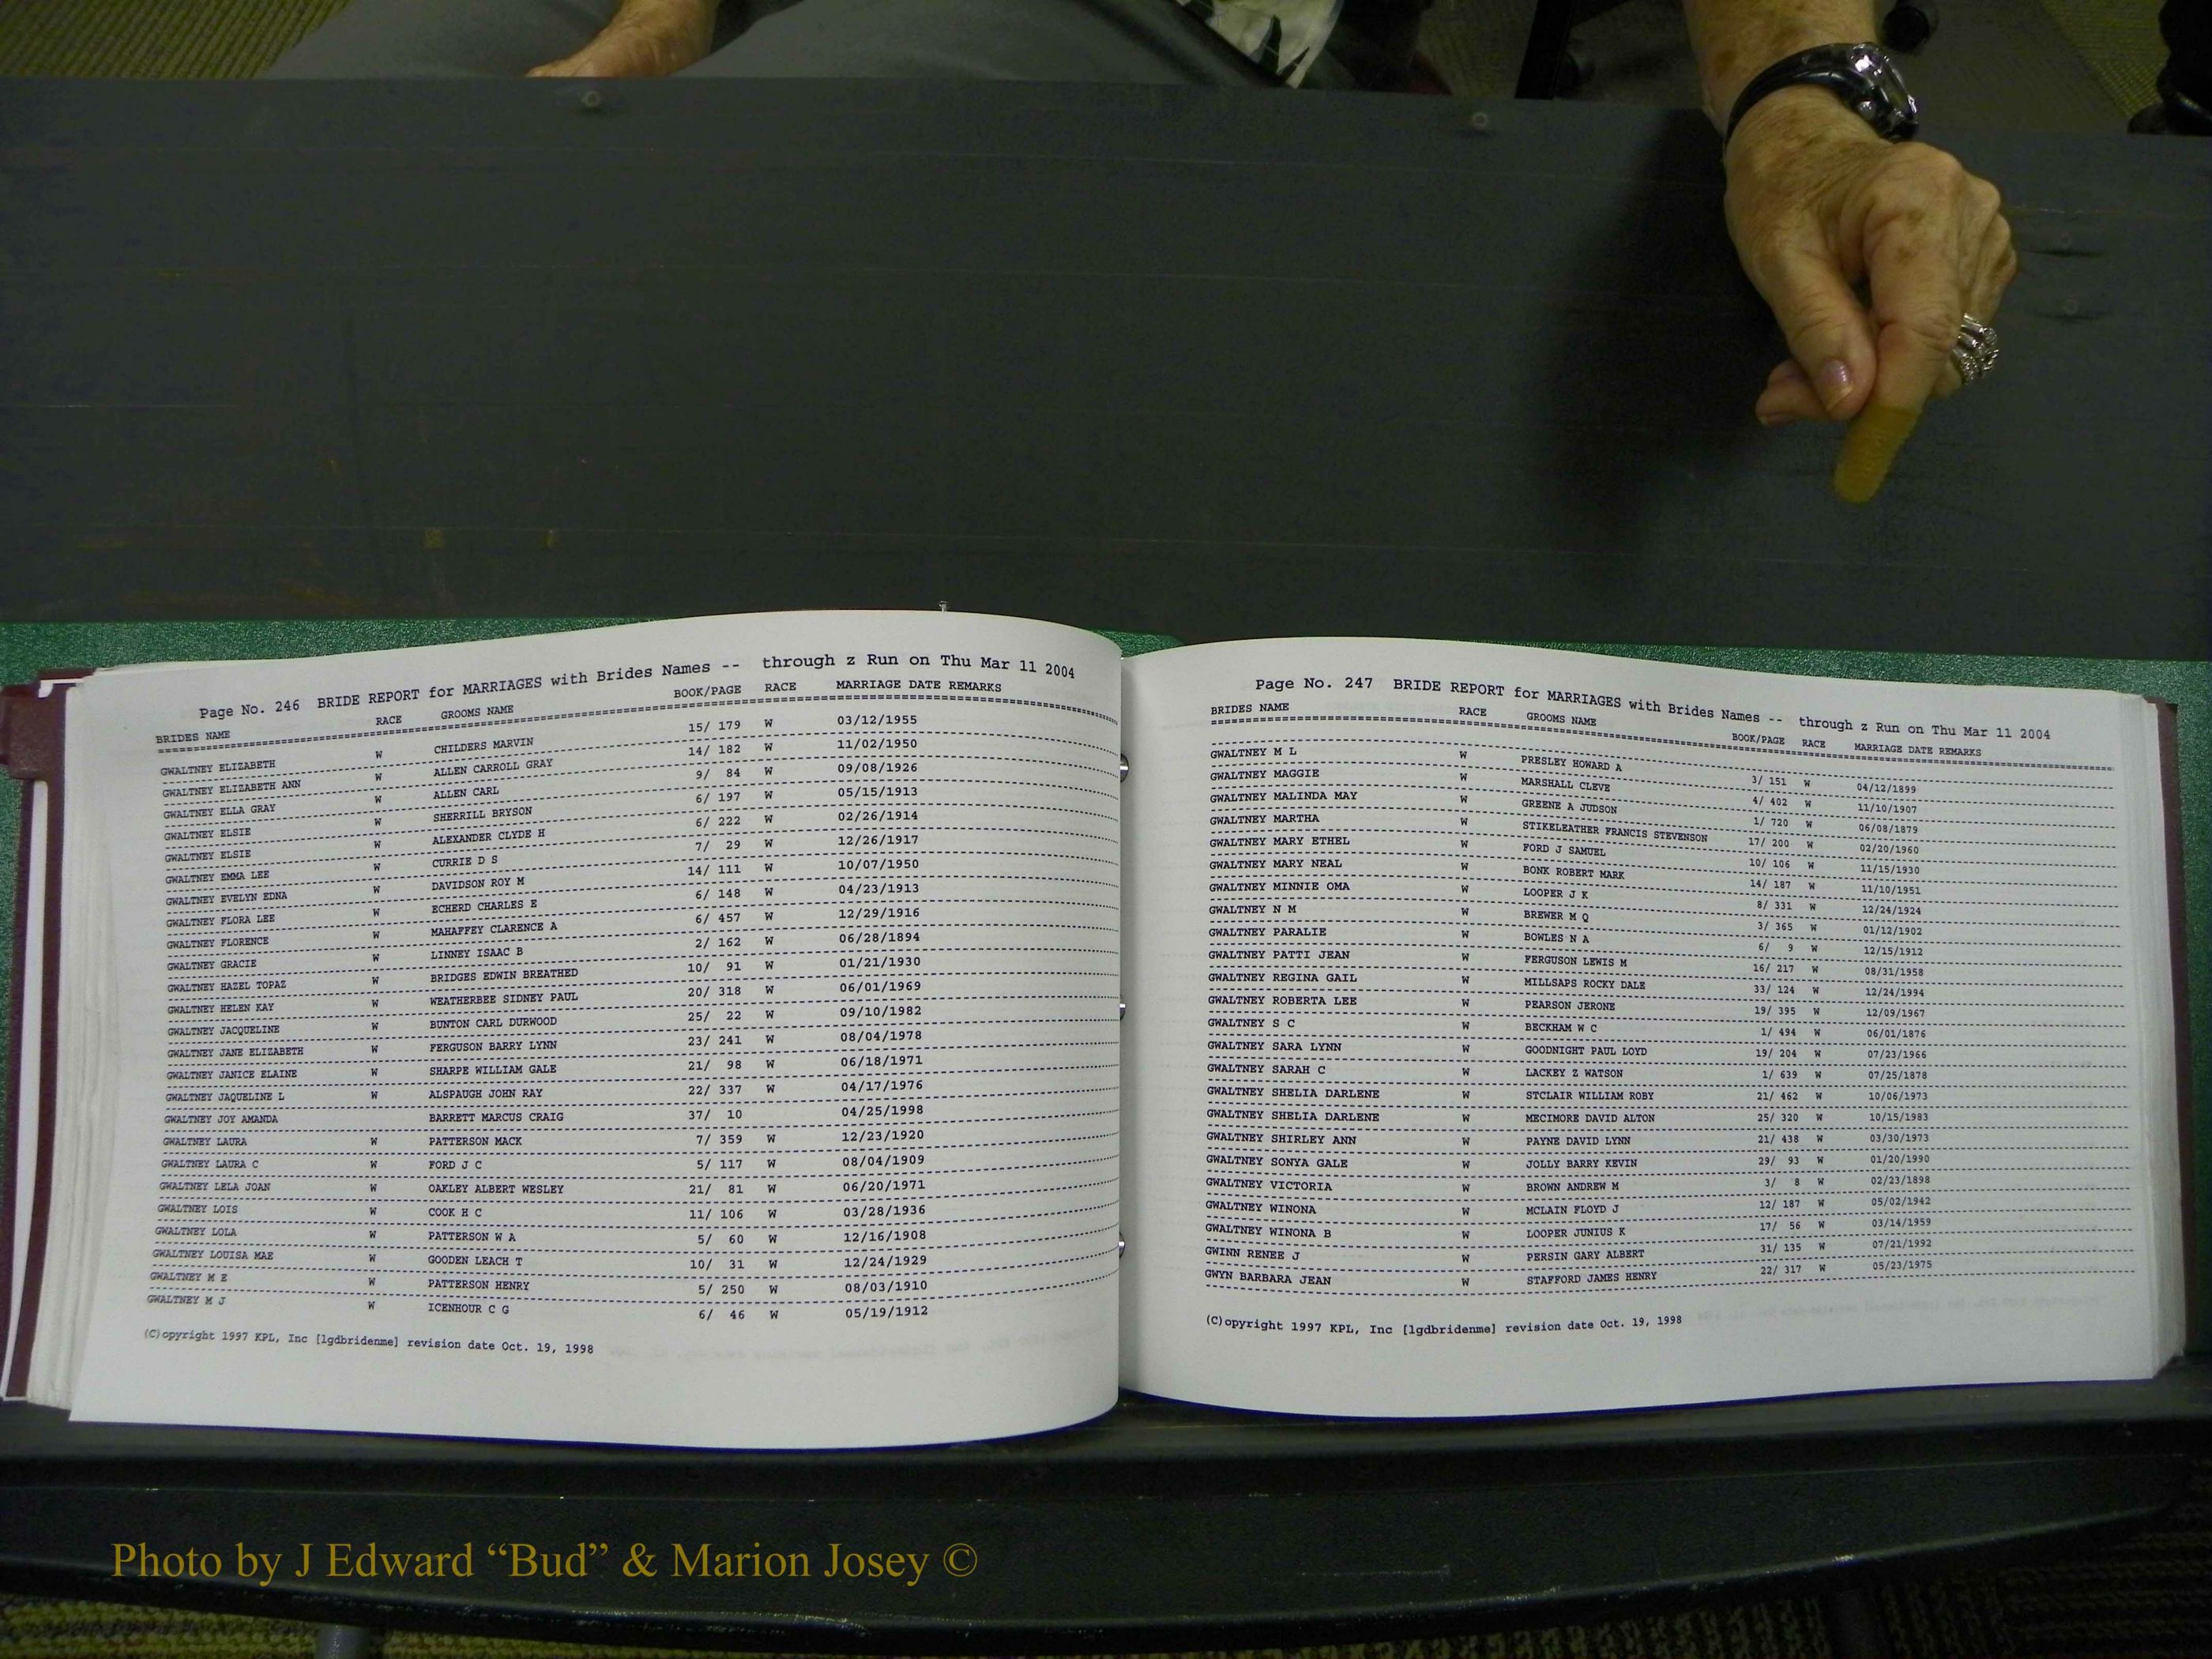 Page No. 246 BRIDE REPORT for MARRIAGES with Brides Names -- through z Run on Thu Mar 11 2004
BRIDES NAME RACE GROOMS NAME BOOK/PAGE RACE MARRIAGE DATE REMARKS
GWALTNEY ELIZABETH W CHILDERS MARVIN 15/ 179 W 03/12/1955
GWALTNEY ELIZABETH ANN W ALLEN CARROLL GRAY 14/ 182 W 11/02/1950
GWALTNEY ELLA GRAY W ALLEN CARL 9/ 84 W 09/08/1926
GWALTNEY ELSIE W SHERRILL BRYSON 6/ 197 W 05/15/1913
GWALTNEY ELSIE W ALEXANDER CLYDE H 6/ 222 W 02/26/1914
GWALTNEY EMMA LEE W CURRIE D S 7/ 29 W 12/26/1917
GWALTNEY EVELYN EDNA W DAVIDSON ROY M 14/ 111 W 10/07/1950
GWALTNEY FLORA LEE W ECHERD CHARLES E 6/ 148 W 04/23/1913
GWALTNEY FLORENCE W MAHAFFEY CLARENCE A 6/ 457 W 12/29/1916
GWALTNEY GRACIE W LINNEY ISAAC B 2/ 162 W 06/28/1894
GWALTNEY HAZEL TOPAZ W BRIDGES EDWIN BREATHED 10/ 91 W 01/21/1930
GWALTNEY HELEN KAY W WEATHERBEE SIDNEY PAUL 20/ 318 W 06/01/1969
GWALTNEY JACQUELINE W BUNTON CARL DURWOOD 25/ 22 W 09/10/1982
GWALTNEY JANE ELIZABETH W FERGUSON BARRY LYNN 23/ 241 W 08/04/1978
GWALTNEY JANICE ELAINE W SHARPE WILLIAM GALE 21/ 98 W 06/18/1971
GWALTNEY JAQUELINE L W ALSPAUGH JOHN RAY 22/ 337 W 04/17/1976
GWALTNEY JOY AMANDA BARRETT MARCUS CRAIG 37/ 10 04/25/1998
GWALTNEY LAURA W PATTERSON MACK 7/ 359 W 12/23/1920
GWALTNEY LAURA C W FORD J C 5/ 117 W 08/04/1909
GWALTNEY LELA JOAN W OAKLEY ALBERT WESLEY 21/ 81 W 06/20/1971
GWALTNEY LOIS W COOK H C 11/ 106 W 03/28/1936
GWALTNEY LOLA W PATTERSON W A 5/ 60 W 12/16/1908
GWALTNEY LOUISA MAE W GOODEN LEACH T 10/ 31 W 12/24/1929
GWALTNEY M E W PATTERSON HENRY 5/ 250 W 08/03/1910
GWALTNEY M J W ICENHOUR C G 6/ 46 W 05/19/1912
(C)opyright 1997 KPL, Inc [lgdbridenme] revision date Oct. 19, 1998
Page No. 247 BRIDE REPORT for MARRIAGES with Brides Names -- through z Run on Thu Mar 11 2004
BRIDES NAME RACE GROOMS NAME BOOK/PAGE RACE MARRIAGE DATE REMARKS
GWALTNEY M L W PRESLEY HOWARD A 3/ 151 W 04/12/1899
GWALTNEY MAGGIE W MARSHALL CLEVE 4/ 402 W 11/10/1907
GWALTNEY MALINDA MAY W GREENE A JUDSON 1/ 720 W 06/08/1879
GWALTNEY MARTHA W STIKELEATHER FRANCIS STEVENSON 17/ 200 W 02/20/1960
GWALTNEY MARY ETHEL W FORD J SAMUEL 10/ 106 W 11/15/1930
GWALTNEY MARY NEAL W BONK ROBERT MARK 14/ 187 W 11/10/1951
GWALTNEY MINNIE OMA W LOOPER J K 8/ 331 W 12/24/1924
GWALTNEY N M W BREWER M Q 3/ 365 W 01/12/1902
GWALTNEY PARALIE W BOWLES N A 6/ 9 W 12/15/1912
GWALTNEY PATTI JEAN W FERGUSON LEWIS M 16/ 217 W 08/31/1958
GWALTNEY REGINA GAIL W MILLSAPS ROCKY DALE 33/ 124 W 12/24/1994
GWALTNEY ROBERTA LEE W PEARSON JERONE 19/ 395 W 12/09/1967
GWALTNEY S C W BECKHAM W C 1/ 494 W 06/01/1876
GWALTNEY SARA LYNN W GOODNIGHT PAUL LOYD 19/ 204 W 07/23/1966
GWALTNEY SARAH C W LACKEY Z WATSON 1/ 639 W 07/25/1878
GWALTNEY SHELIA DARLENE W STCLAIR WILLIAM ROBY 21/ 462 W 10/06/1973
GWALTNEY SHELIA DARLENE W MECIMORE DAVID ALTON 25/ 320 W 10/15/1983
GWALTNEY SHIRLEY ANN W PAYNE DAVID LYNN 21/ 438 W 03/30/1973
GWALTNEY SONYA GALE W JOLLY BARRY KEVIN 29/ 93 W 01/20/1990
GWALTNEY VICTORIA W BROWN ANDREW M 3/ 8 W 02/23/1898
GWALTNEY WINONA W MCLAIN FLOYD J 12/ 187 W 05/02/1942
GWALTNEY WINONA B W LOOPER JUNIUS K 17/ 56 W 03/14/1959
GWINN RENEE J W PERSIN GARY ALBERT 31/ 135 W 07/21/1992
GWYN BARBARA JEAN W STAFFORD JAMES HENRY 22/ 317 W 05/23/1975
(C)opyright 1997 KPL, Inc [lgdbridenme] revision date Oct. 19, 1998
Photo by J Edward “Bud” & Marion Josey ©